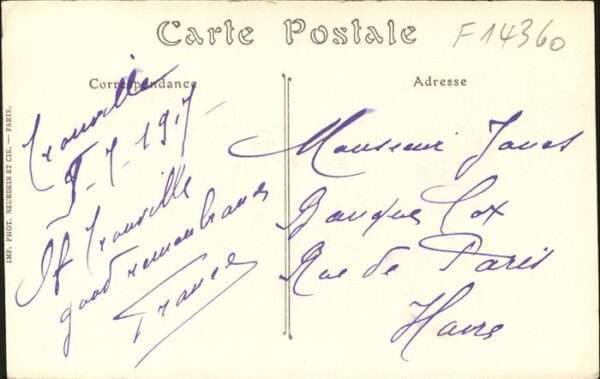 Carte Postale
F14360
Correspondance
Adresse
IMP. PHOT. NEURDEIN ET CIE. — PARIS.
Trouville
5-7-1917
Of Trouville
good remembrance
France
Monsieur Jones
Banque Cox
Rue de Paris
Havre